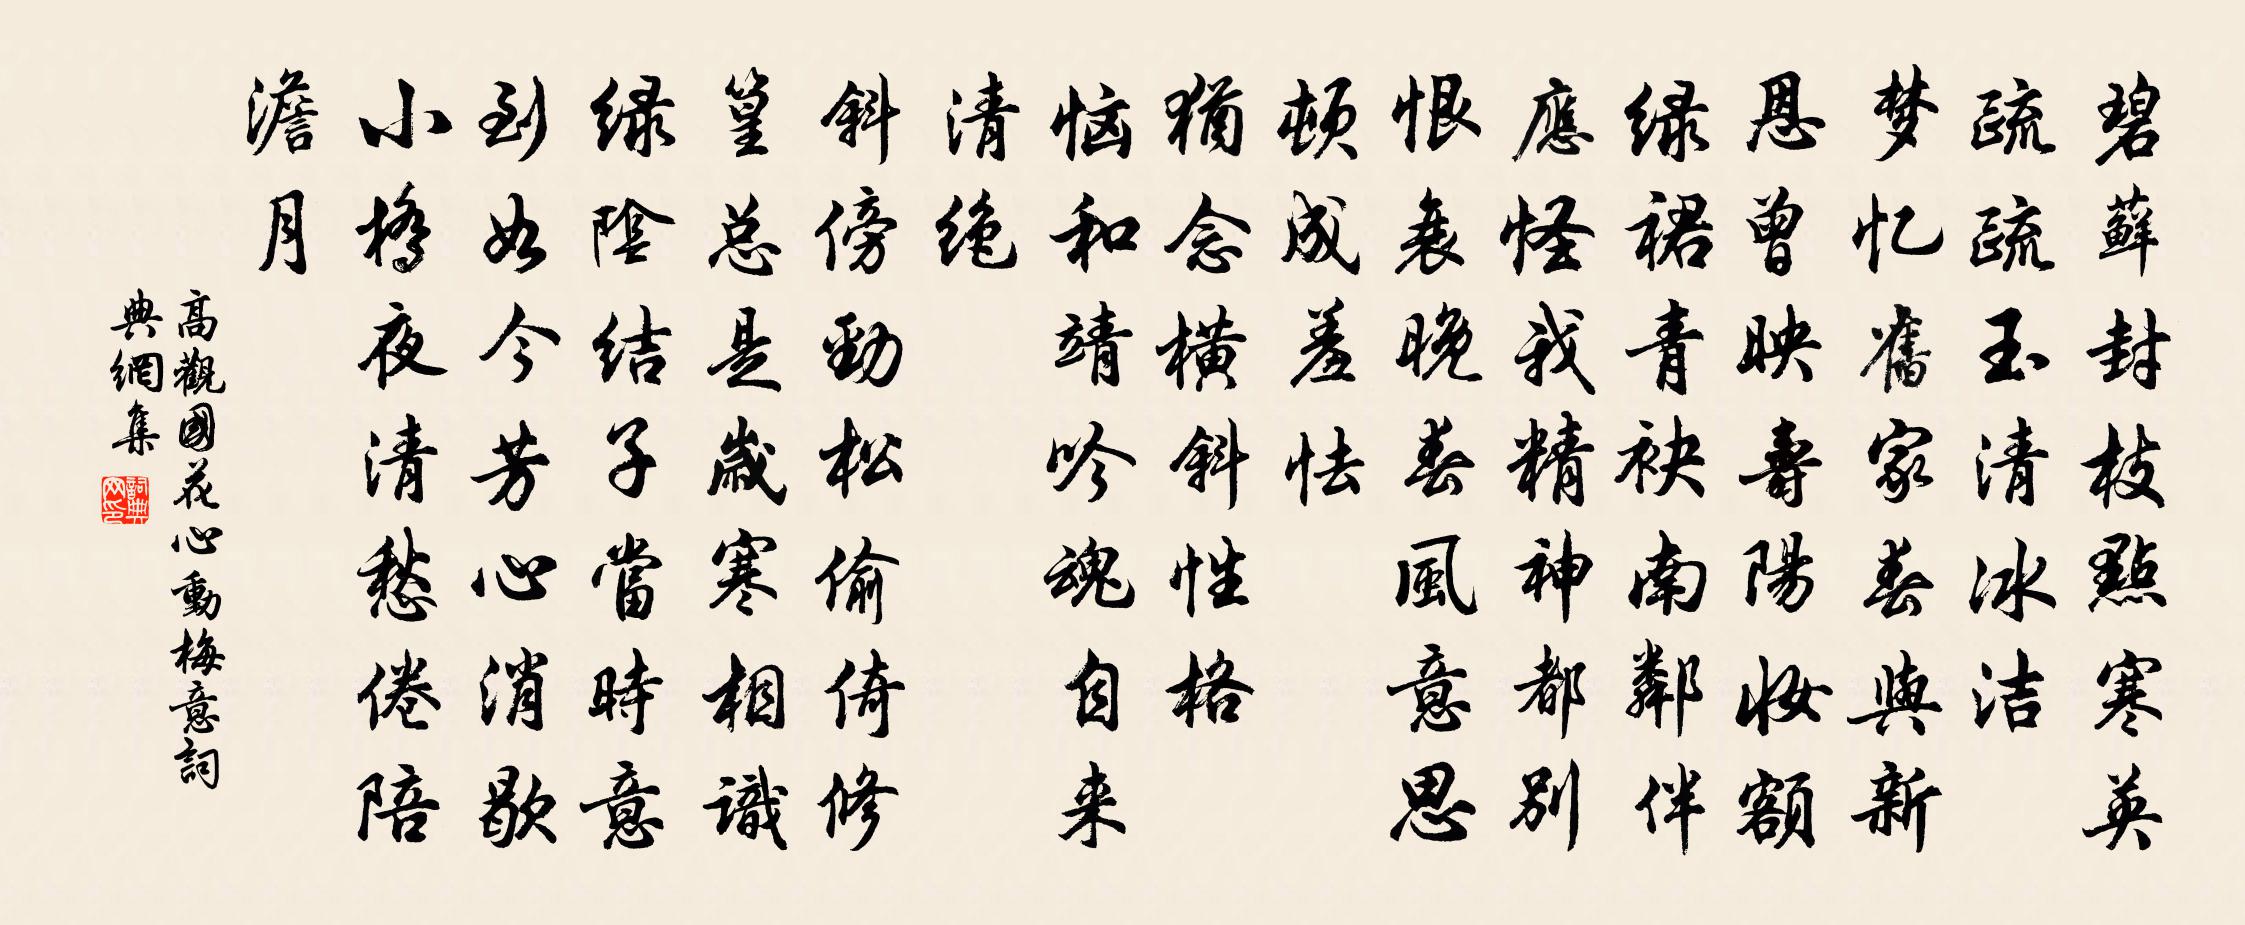 碧藓封枝點寒英
疏疏玉清冰洁
梦忆舊家春與新
恩曾映壽陽妝額
绿裙青袂南鄰伴
應怪我精神都别
恨衰晚春風意思
顿成羞怯
猶念横斜性格
恼和靖吟魂自来
清绝
斜傍勁松偷倚修
篁总是歲寒相識
绿陰结子當時意
到如今芳心消歇
小橋夜清愁倦陪
澹月
高觀國花心動梅意詞
典網集
詞典网印